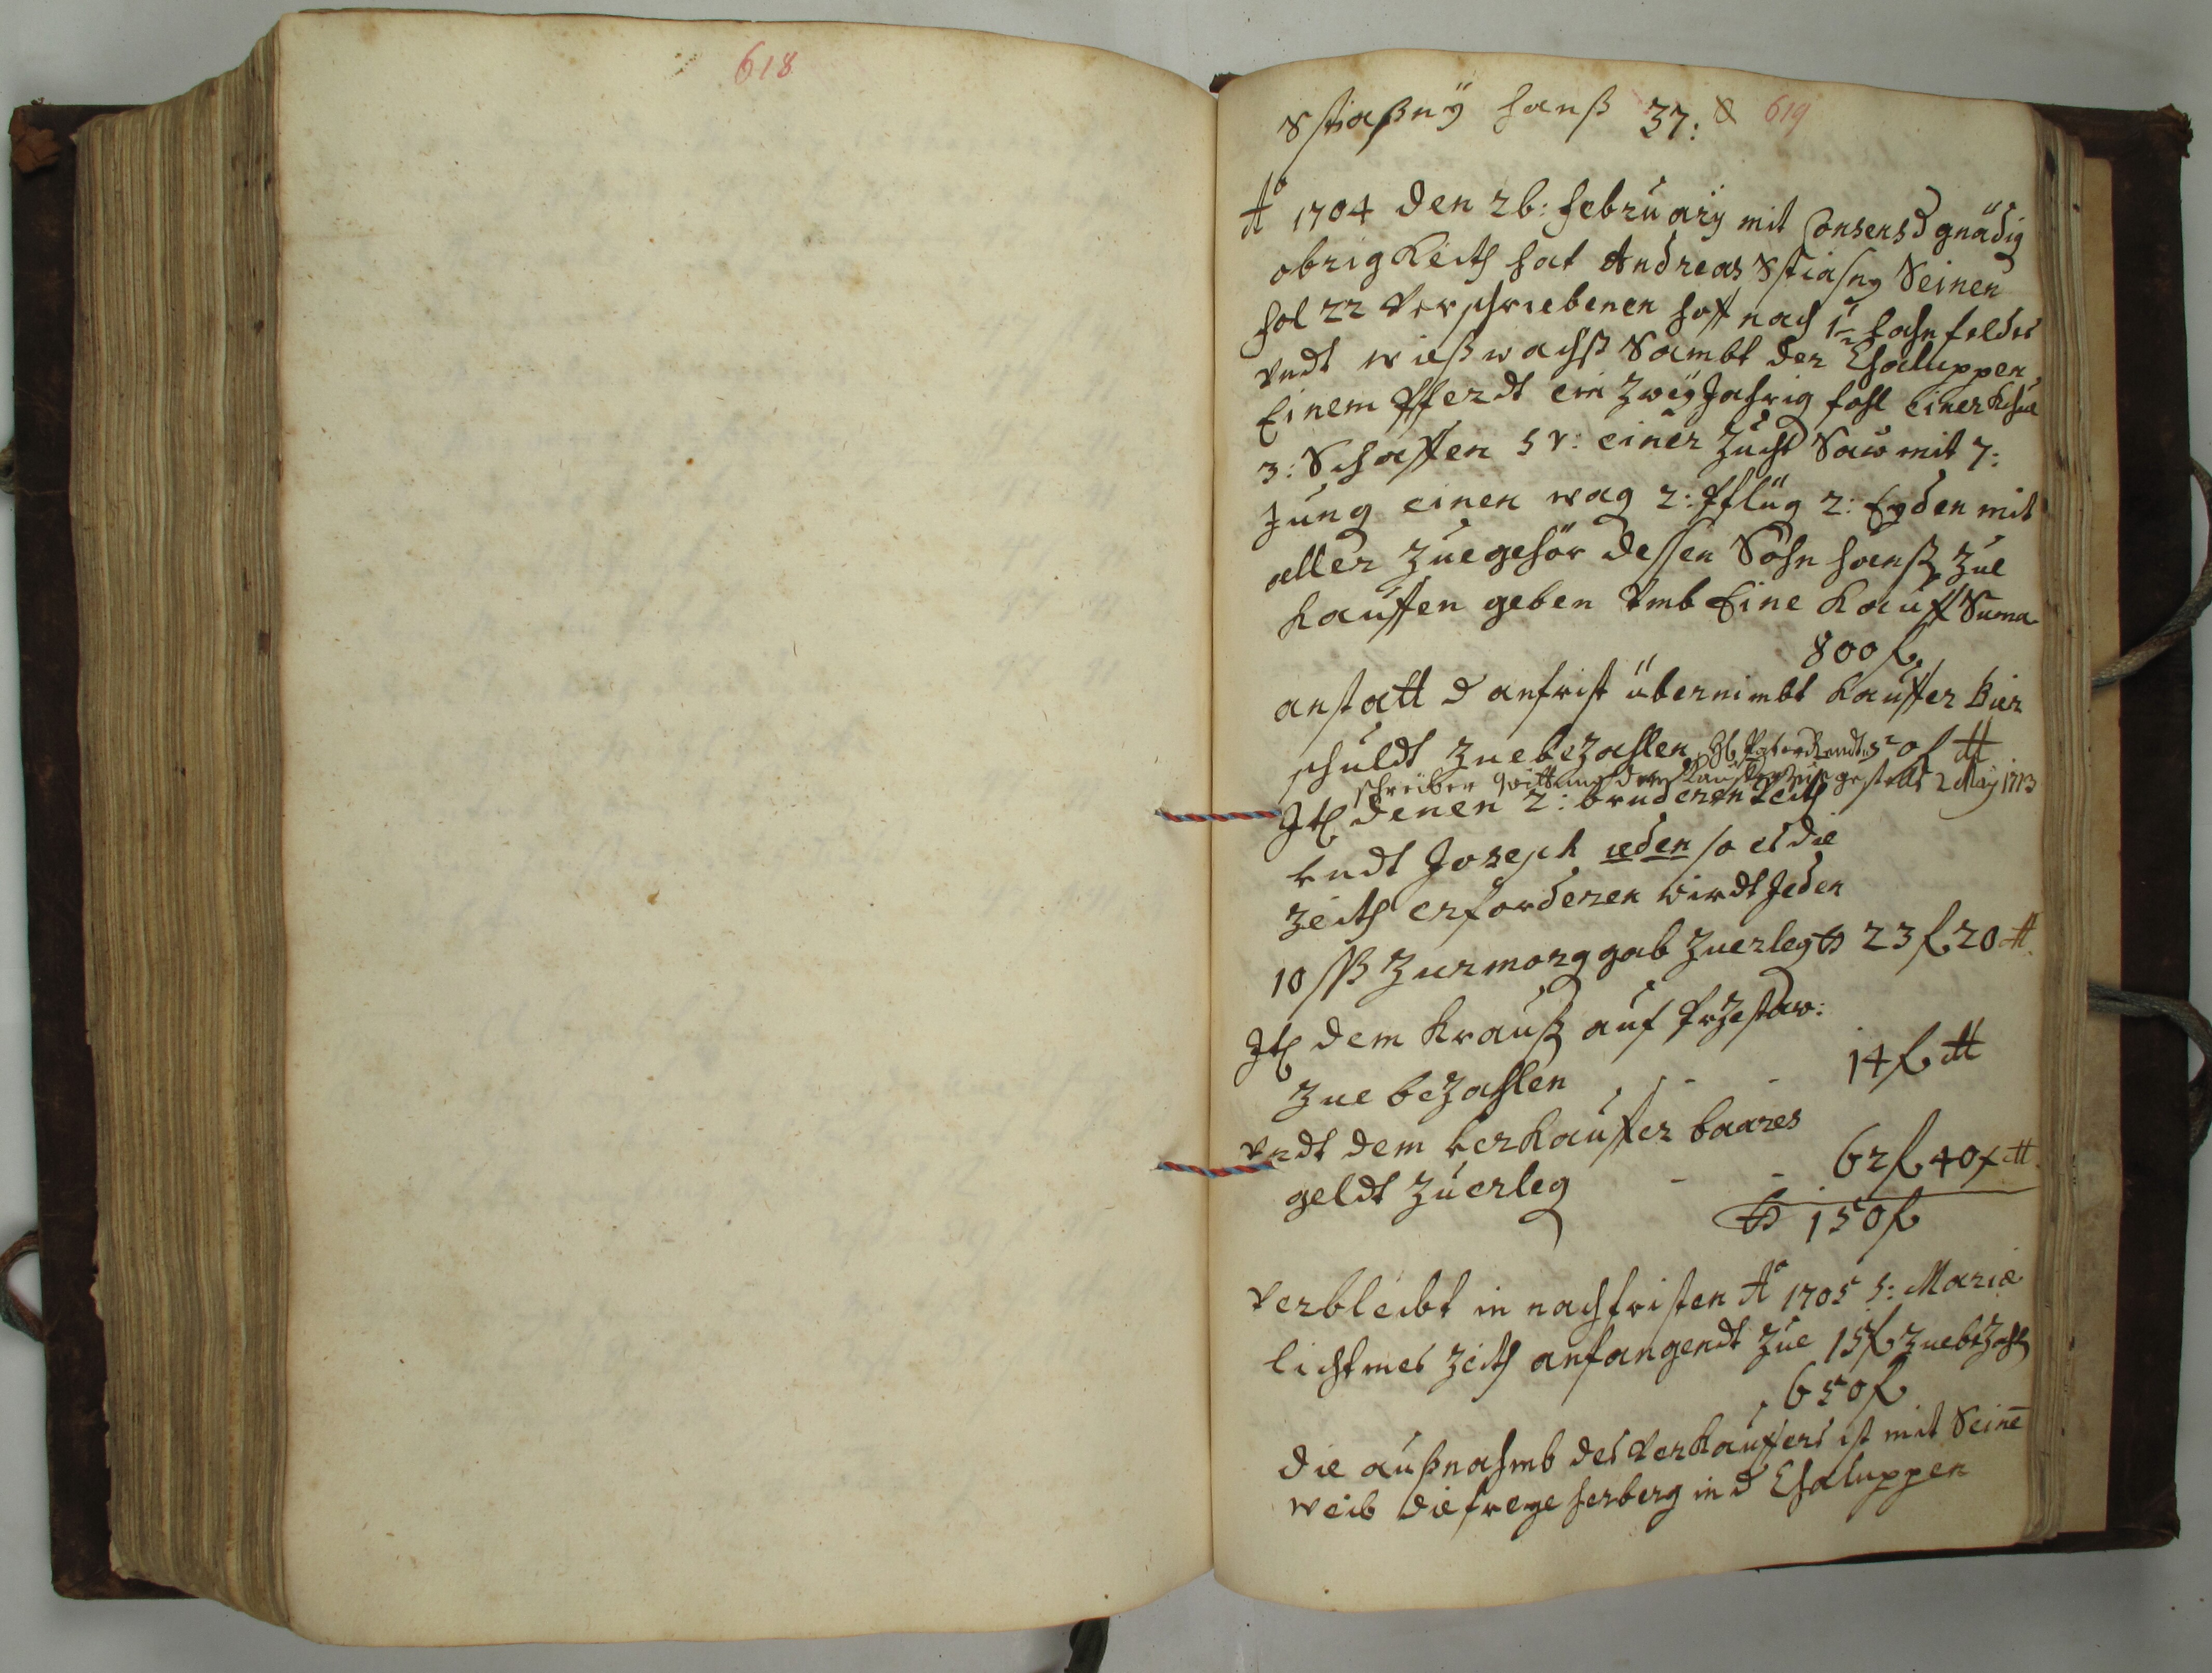 618
Stiaßnÿ Hanß 37: 619
Aõ 1704 den 26: Februarÿ mit Consens d gnädig
obrigkeith hat Andreas Stiasny Seinen
fol 22 verschriebenen hoff nach 1 hahn feldes
vndt wießwachß Sambt der Chaluppen
Einem Pferdt ein Zweÿ Jahrig fohl einer Khue
3: Schaffen 5 v: einer Zucht Saw mit 7:
Jung einen wag 2: Pflüg 2: Eyden mit
aller Zuegehör dessen Sohn Hanß Zue
kauffen geben vmb Eine Kauff Suma
800 f
anstatt d anfrist übernimbt kauffer Bier
schuldt Zuebezahlen 50 f
schreiber quittung dem Kauffer gestelt 2 May 1713
Itl denen 2: brüderen Veith
vndt Joseph ieden so es die
Zeith erforderen wirdt Jeden
10 ßß Zur morggab Zuerleg 23 f 20
Itl dem Krauß auf Przestaw:
Zue bezahlen - - 14 f
vndt dem verkauffer baares
geldt Zuerleg - - 62 f 40 x
150 f
Verbleibt in nachfristen Aõ 1705 S: Mariæ
lichtmes Zeith anfangendt Zue 15 f Zuebezahl
650 f
Die außnahmb des verkauffers ist mit Seinē
weib die freye herberg in d Chaluppen